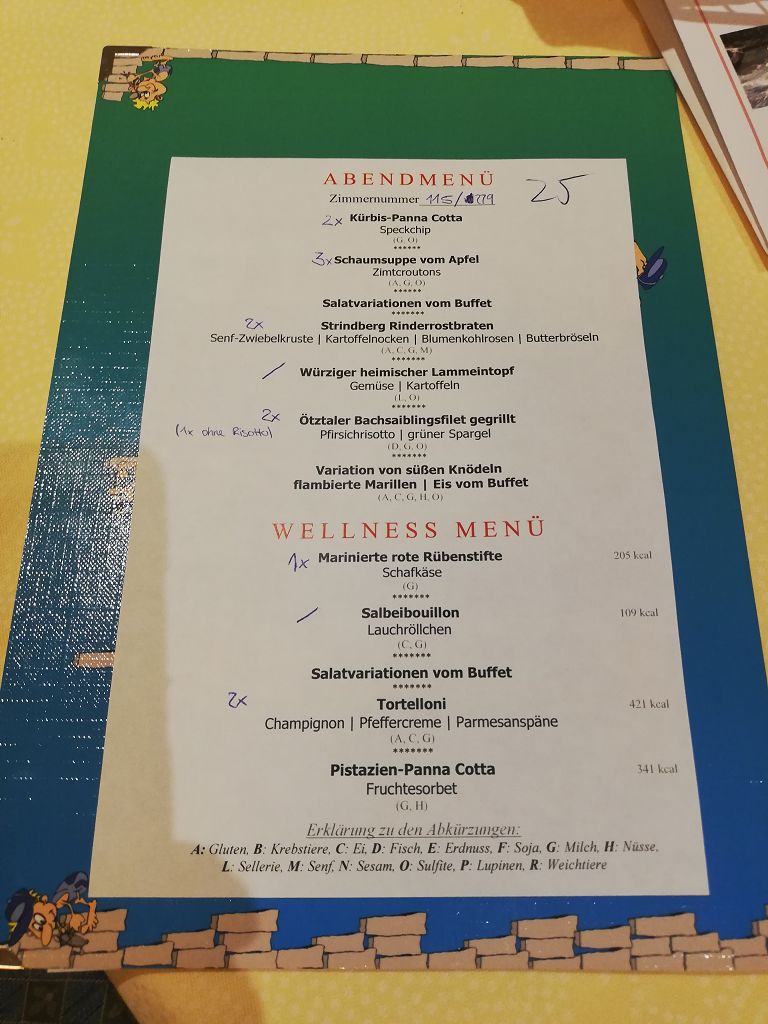 ABENDMENÜ
Zimmernummer 115/ 119 25
2x Kürbis-Panna Cotta
Speckchip
(G, O)
******
3x Schaumsuppe vom Apfel
Zimtcroutons
(A, G, O)
******
Salatvariationen vom Buffet
*******
2x Strindberg Rinderrostbraten
Senf-Zwiebelkruste | Kartoffelnocken | Blumenkohlrosen | Butterbröseln
(A, C, G, M)
*******
/ Würziger heimischer Lammeintopf
Gemüse | Kartoffeln
(L, O)
*******
2x Ötztaler Bachsaiblingsfilet gegrillt
(1x ohne Risotto) Pfirsichrisotto | grüner Spargel
(D, G, O)
*******
Variation von süßen Knödeln
flambierte Marillen | Eis vom Buffet
(A, C, G, H, O)
WELLNESS MENÜ
1x Marinierte rote Rübenstifte 205 kcal
Schafkäse
(G)
*******
/ Salbeibouillon 109 kcal
Lauchröllchen
(C, G)
*******
Salatvariationen vom Buffet
*******
2x Tortelloni 421 kcal
Champignon | Pfeffercreme | Parmesanspäne
(A, C, G)
*******
Pistazien-Panna Cotta 341 kcal
Fruchtesorbet
(G, H)
Erklärung zu den Abkürzungen:
A: Gluten, B: Krebstiere, C: Ei, D: Fisch, E: Erdnuss, F: Soja, G: Milch, H: Nüsse,
L: Sellerie, M: Senf, N: Sesam, O: Sulfite, P: Lupinen, R: Weichtiere